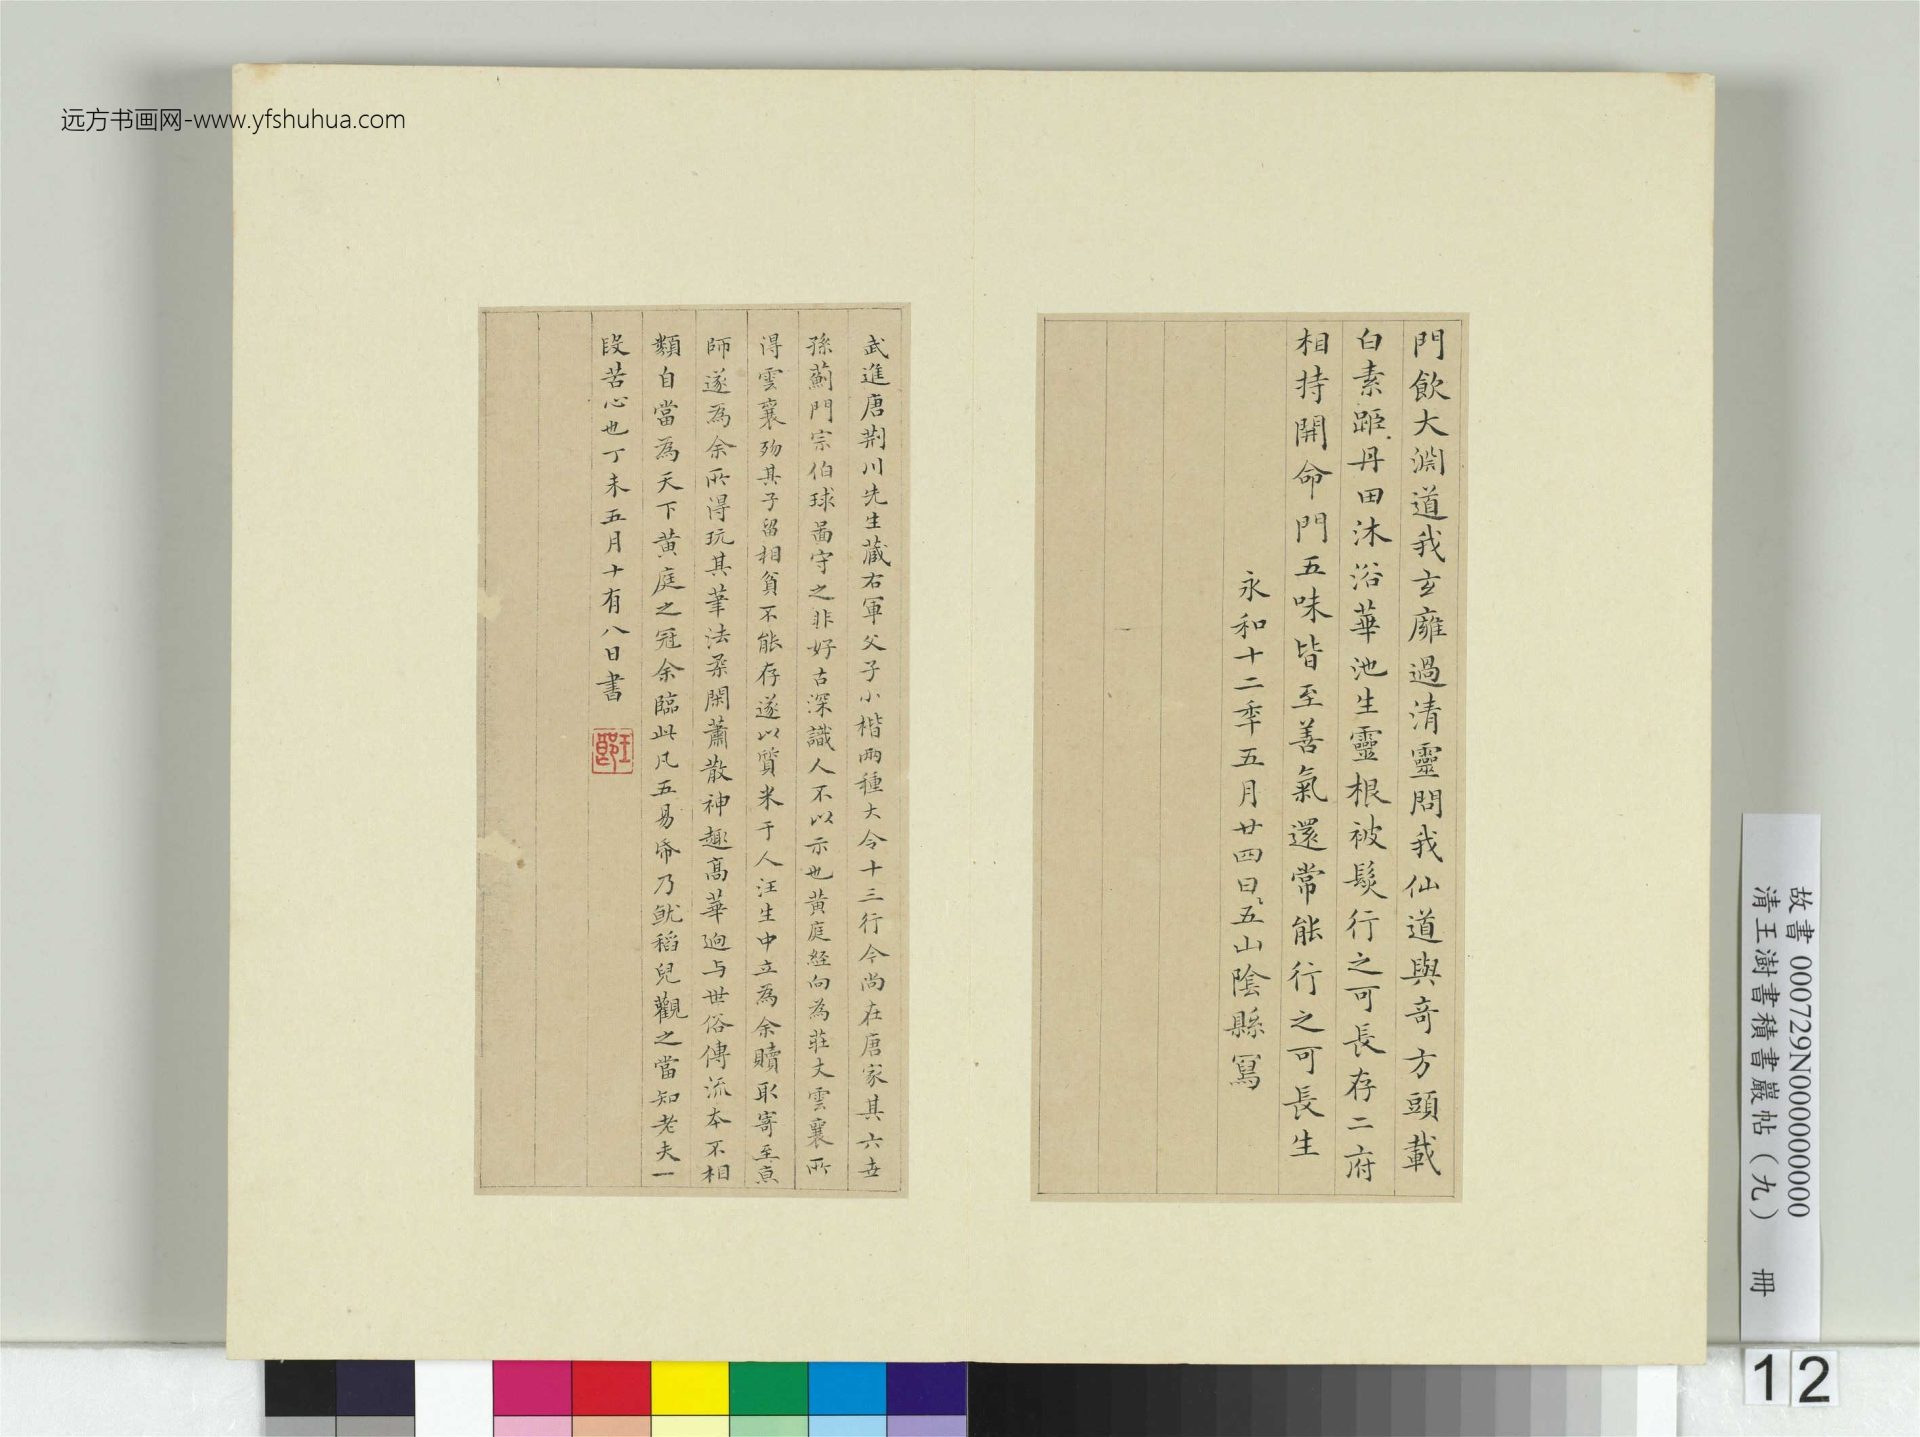 远方书画网-www.yfshuhua.com
門飲大淵道我玄廱過清靈問我仙道與奇方頭載
白素距丹田沐浴華池生靈根被髮行之可長存二府
相持開命門五味皆至善氣還常能行之可長生
永和十二年五月廿四日五山陰縣寫
武進唐荆川先生蔵右軍父子小楷兩種大令十三行今尚在唐家其六世
孫薊門宗伯球啚守之非好古深識人不以示也黄庭經向為莊丈雲襄所
得雲襄殁其子留相貧不能存遂以質米于人汪生中立為余贖取寄至京
師遂為余所得玩其筆法柔閑蕭散神趣髙華逈与世俗傳流本不相
類自當為天下黄庭之冠余臨此凡五易帋乃就稻兒觀之當知老夫一
段苦心也丁未五月十有八日書
故書 000729N000000000
清王澍書積書巖帖（九） 冊
12